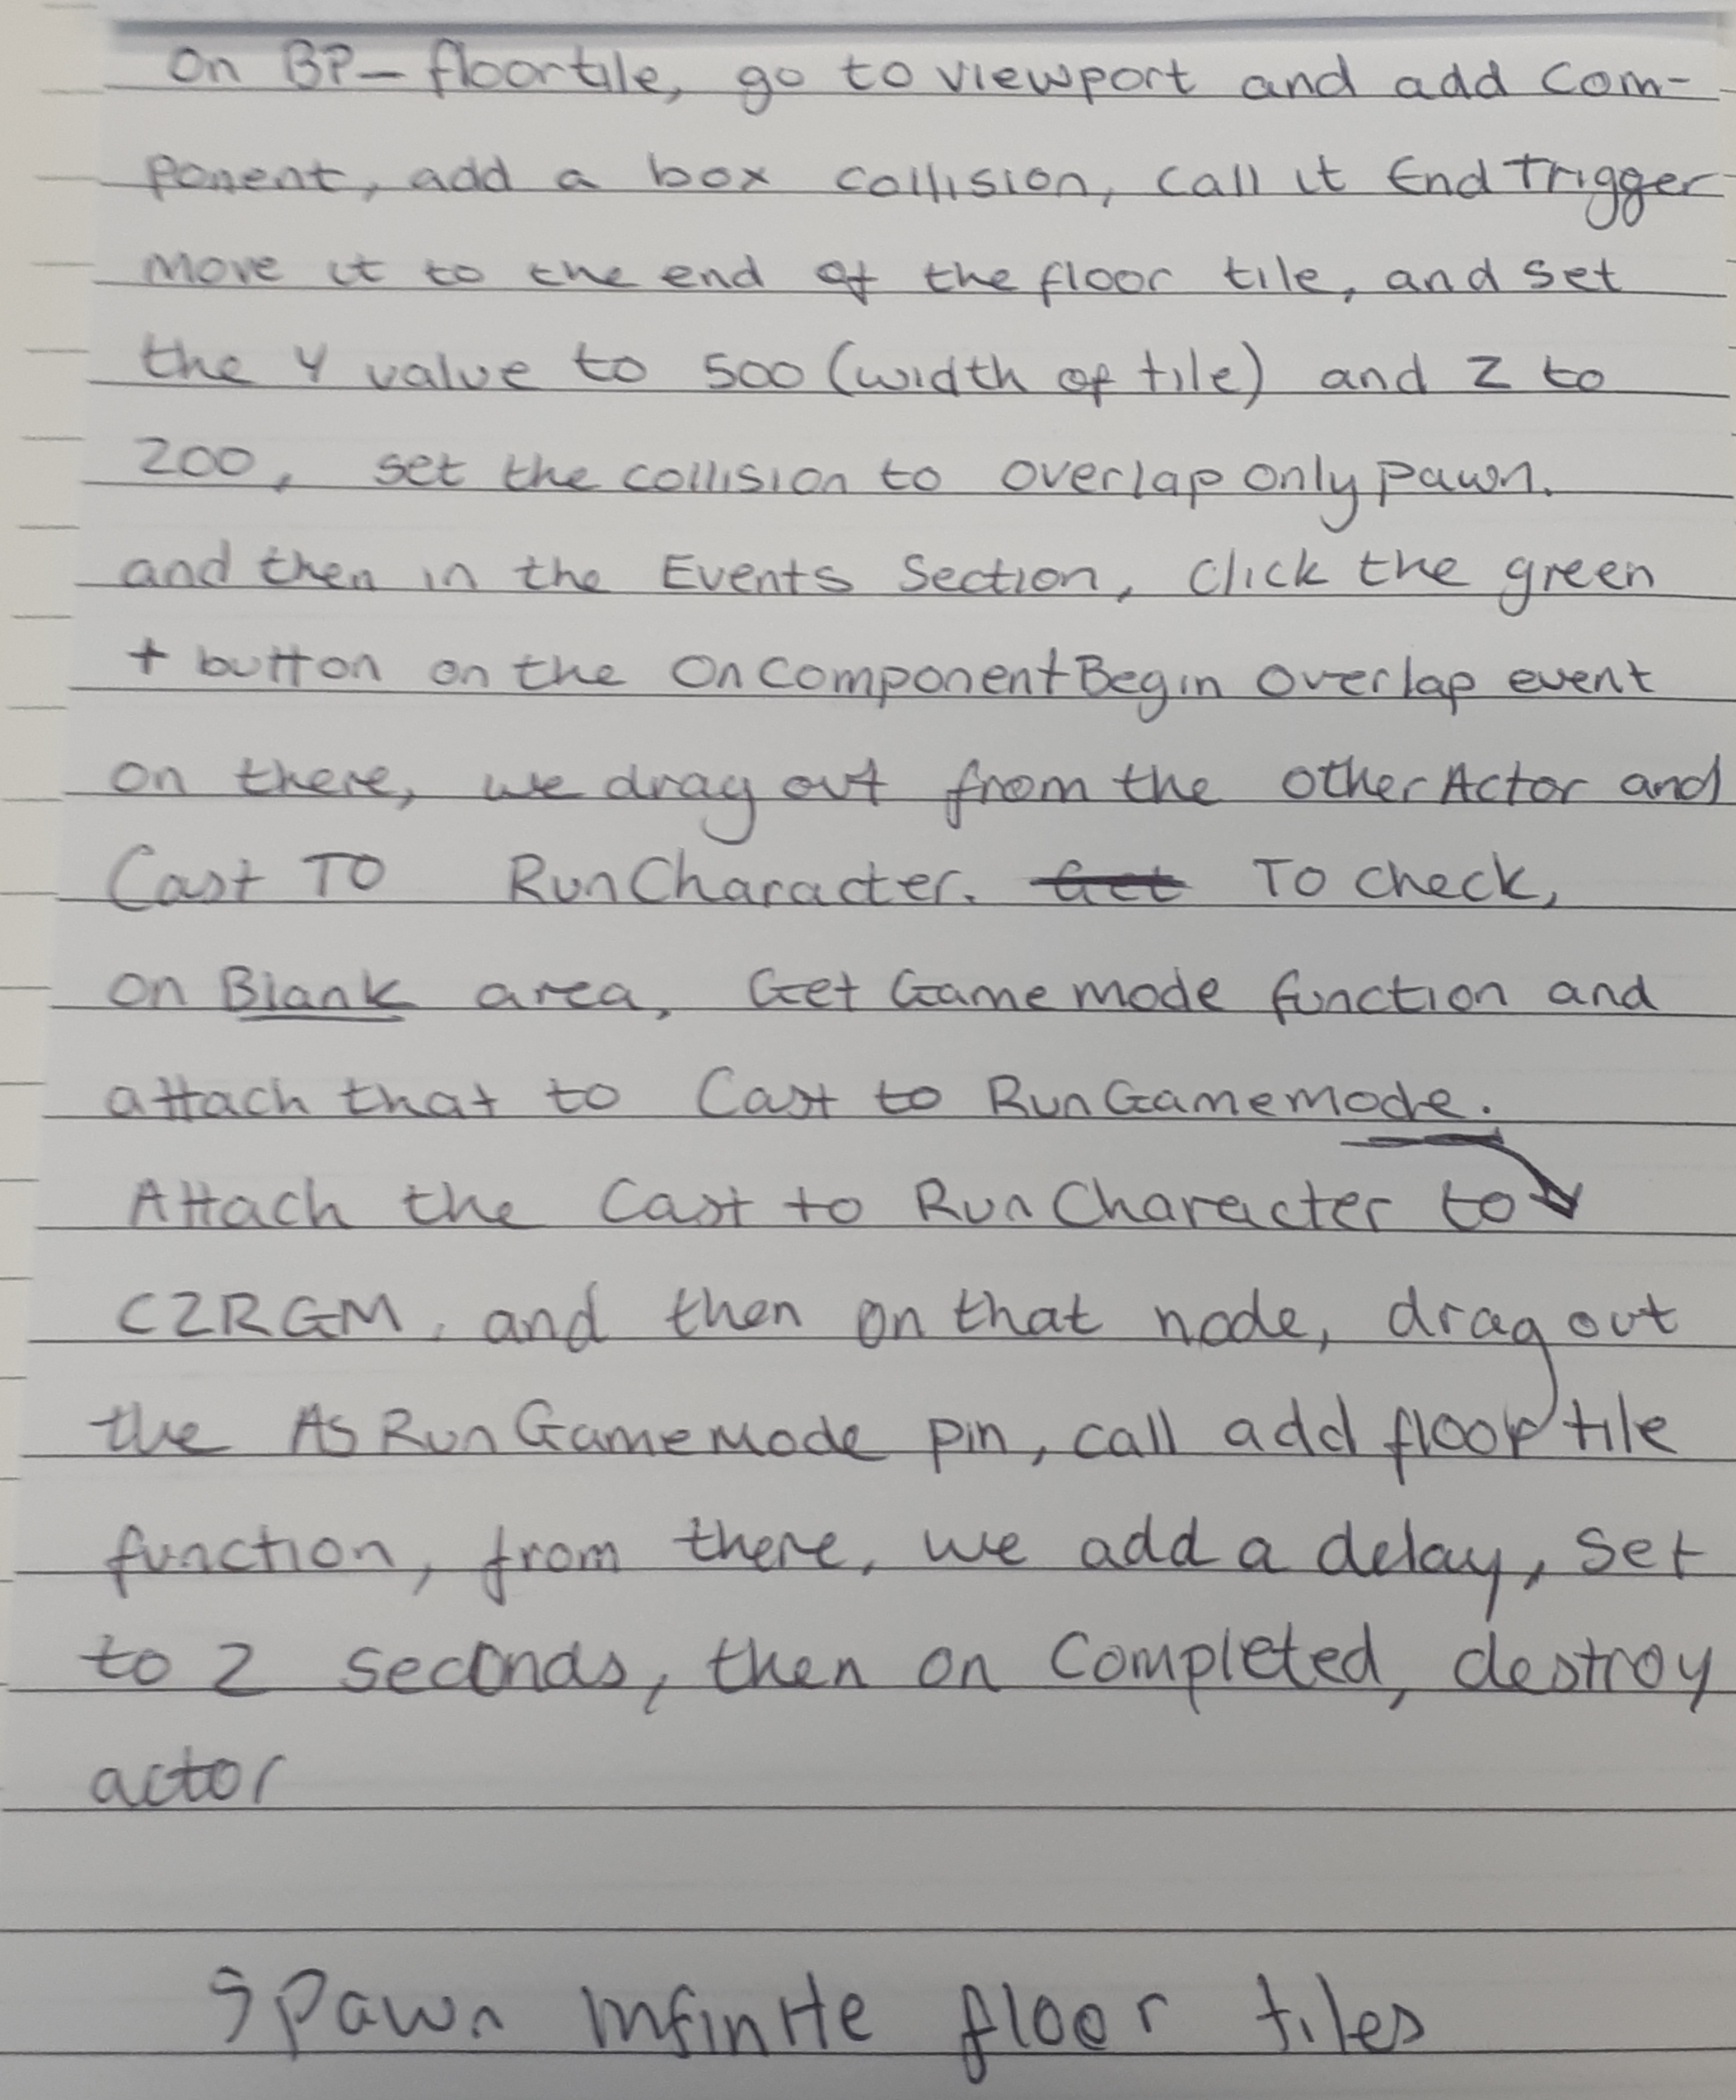 On BP-floortile, go to viewport and add com-
ponent, add a box collision, call it EndTrigger
Move it to the end of the floor tile, and set
the Y value to 500 (width of tile) and Z to
200, set the collision to overlap only pawn.
and then in the Events Section, click the green
+ button on the OnComponentBegin Overlap event
on there, we drag out from the Other Actor and
Cast TO RunCharacter. Get To check,
on Blank area, Get Game mode function and
attach that to Cast to RunGamemode.
Attach the Cast to RunCharacter to
C2RGM, and then on that node, drag out
the As RunGameMode pin, call add floor tile
function, from there, we add a delay, set
to 2 seconds, then on Completed, destroy
actor
Spawn Infinite floor tiles